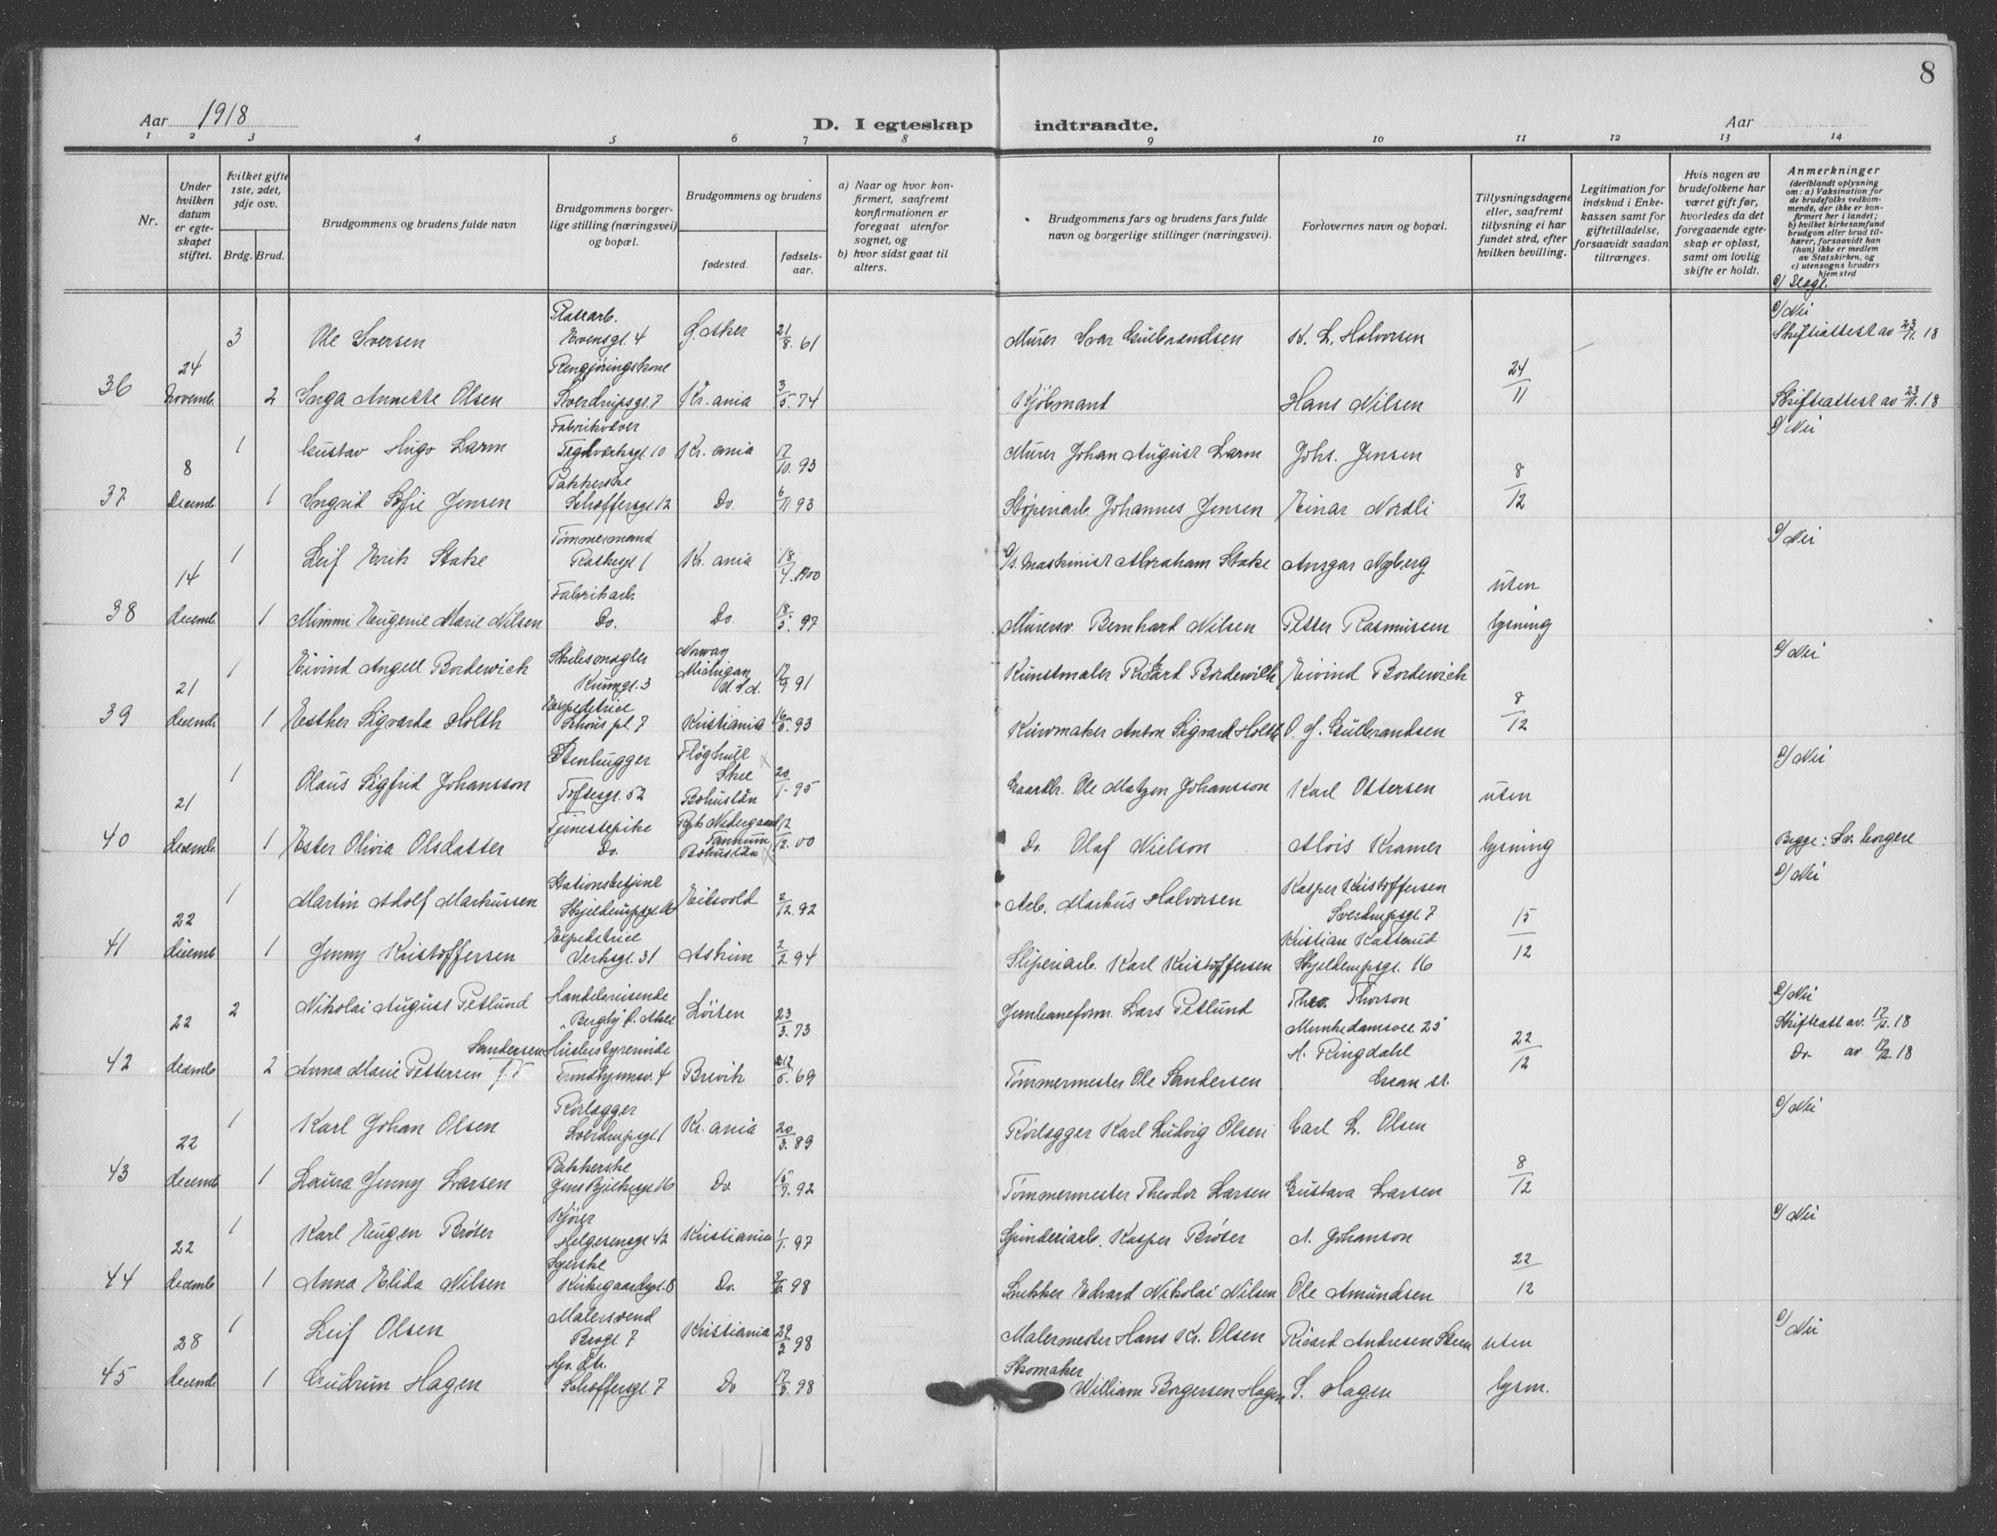 8
Aar 1918
D. I egteskap indtraadte.
Aar
1 2 3 4 5 6 7 8 9 10 11 12 13 14
Nr.
Under hvilken datum er egteskapet stiftet.
Hvilket gifte 1ste, 2det, 3dje osv.
Brdg. Brud.
Brudgommens og brudens fulde navn
Brudgommens borgerlige stilling (næringsvei) og bopæl.
Brudgommens og brudens
fødested.
fødselsaar.
a) Naar og hvor konfirmert, saafremt konfirmationen er foregaat utenfor sognet, og
b) hvor sidst gaat til alters.
Brudgommens fars og brudens fars fulde navn og borgerlige stillinger (næringsvei).
Forlovernes navn og bopæl.
Tillysningsdagene eller, saafremt tillysning ei har fundet sted, efter hvilken bevilling.
Legitimation for indskud i Enkekassen samt for giftetilladelse, forsaavidt saadan tiltrænges.
Hvis nogen av brudefolkene har været gift før, hvorledes da det foregaaende egteskap er opløst, samt om lovlig skifte er holdt.
Anmerkninger
(deriblandt oplysning om: a) Vaksination for de brudefolks vedkommende, der ikke er konfirmert her i landet; b) hvilket kirkesamfund brudgom eller brud tilhører, forsaavidt han (hun) ikke er medlem av Statskirken, og c) utensogns bruders hjemsted
c/ Slegt.
3 Ole Iversen Evensgt. 4 Ø. Aker 21/8. 61 Murer Ivar Gulbrandsen K. L. Halvorsen c/ Nei Skifteattest av 23/11. 18
36 24 Novemb. 2 Inga Annette Olsen Rengjøringskone Sverdrupsgt. 7 Kr. ania 3/5. 74 Kjøbmand Hans Nilsen 24/11 Skifteattest av 23/11. 18
1 Gustav Hugo Larm Teglverksgt. 10 Kr. ania 17/10. 93 Murer Johan August Larm Johs. Jensen c/ Nei
37 8 Decemb 1 Ingrid Sofie Jensen Pakkerske Schøffersgt. 12 Do. 6/11. 93 Støperiarb. Johannes Jensen Einar Nordli 8/12
1 Leif Erik Stake Tømmermand Ratkesgt 1 Kr. ania 18/4. 1900 Maskinist Abraham Stake Ansgar Nyberg c/ Nei
38 14 decemb 1 Mimmi Eugenie Marie Nilsen Fabrikarb. Do. Do. 18/5. 97 Murersv. Bernhard Nilsen Petter Rasmussen uten lysning
1 Eivind Angell Bordewich Norway Michigan 17/9 91 Kunstmaler Rikard Bordewich Eivind Bordewich c/ Nei
39 21 decemb 1 Esther Sigvarda Holth Expeditrice Schous pl. 7 Kristiania 16/5. 93 Kurvmaker Anton Sigvard Holth O. J. Gulbrandsen 8/12
1 Olaus Sigfrid Johansson Stenhugger Toftesgt. 52 Skee Bohuslän 20/1. 95 Gaardbr. Ole Matzen Johansson Karl Ottersen c/ Nei
40 21 decemb 1 Ester Olivia Olsdatter Tjenestepike Do. Tannum Bohuslän 12/12. 00 Do. Olaf Nielson Alois Kramer uten lysning Begge: Sv. borgere
1 Martin Adolf Markussen Stationsbetjent Skjeldrupsgt 16 Eidsvold 2/12. 92 Arb. Markus Halvorsen Kasper Kristoffersen Sverdrupsgt 7 c/ Nei
41 22 decemb 1 Jenny Kristoffersen Expeditrice Verksgt. 31 Askim 2/2 94 Sliperiarb. Karl Kristoffersen Kristian Kasterud Skjeldrupsgt. 16 15/12
2 Nikolai August Petlund Handelsreisende "Bergly" Ø. Aker Løiten 23/3. 73 Jernbaneform. Lars Petlund Theo. Thorson Munkedamsvei 25 c/ Nei Skifteatt. av. 17/12. 18
42 22 decemb 2 Anna Marie Pettersen f. Sandersen Husbestyrerinde Trondhjemsv. 4 Brevik 5. 69 Tømmermester Ole Sandersen H. Ringdahl Gran st. 22/12 Do. av 17/12. 18
1 Karl Johan Olsen Rørlægger Sverdrupsgt 1 Kr. ania 20/3. 89 Rørlægger Karl Ludvig Olsen Carl L. Olsen c/ Nei
43 22 decemb 1 Laura Jenny Larsen Pakkerske Jens Bjelkesgt 16 Do. 92 Tømmermester Theodor Larsen Gustava Larsen 8/12
1 Karl Eugen Brøter Kjører Helgesensgt 42 Kristiania 1/1. 97 Spinderiarb. Kasper Brøter A. Johanson c/ Nei
44 22 decemb 1 Anna Elida Nilsen Syerske Kirkegaardsgt. 8 Do. 98 Snekker Edvard Nikolai Nilsen Ole Amundsen 22/12
1 Leif Olsen Malersvend Bergt. 7 Kristiania 98 Malermester Hans Kr. Olsen Rikard Andresen c/ Nei
45 28 decemb 1 Gudrun Hagen Schøffersgt. 7 Do 98 Skomaker William Borgersen Hagen S. Hagen uten lysn.